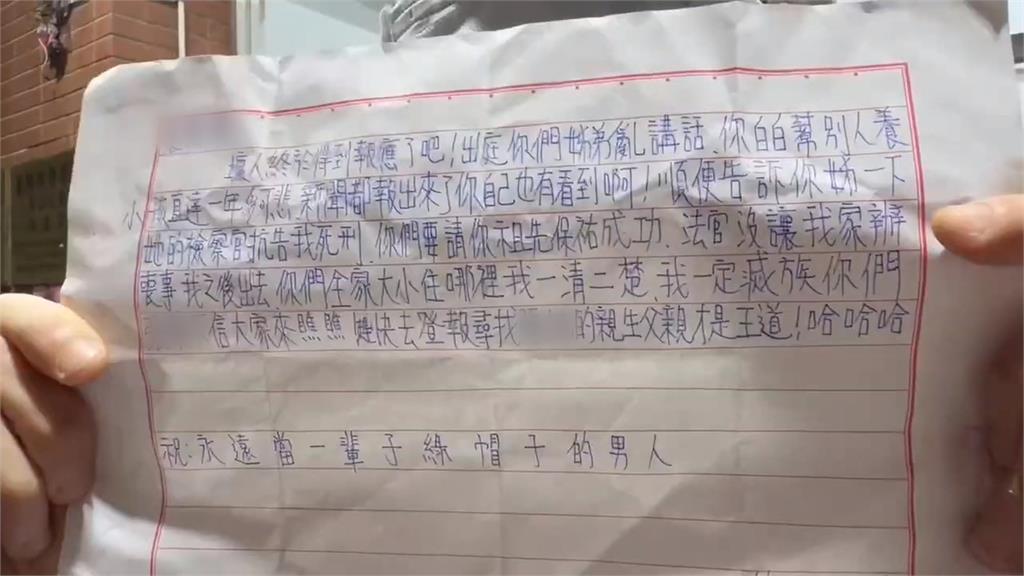 壞人終於得到報應了吧!出庭你們姊弟亂講話、你白白幫別人養
小孩真達一年多可悲,新聞都報出來了你自己也有看到啊!順便告訴你姊一下
她的檢察官抗告我死刑、你們要請你祖先保祐成功、法官沒讓我家辦
喪事我之後出去、你們全家大小住哪裡我一清二楚、我一定滅族你們
信大家來瞧瞧 趕快去登報尋找 的親生父親才是王道!哈哈哈
祝:永遠當一輩子綠帽子的男人